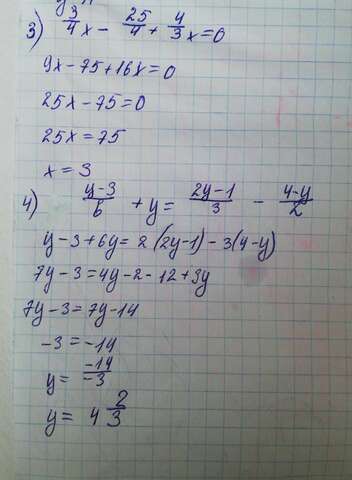 3) 3/4x - 25/4 + 4/3x=0
9x-75+16x=0
25x-75=0
25x=75
x=3
4) y-3/6 + y= 2y-1/3 - 4-y/2
y-3+6y=2(2y-1)-3(4-y)
7y-3=4y-2-12+3y
7y-3=7y-14
-3=-14
y= -14/-3
y= 4 2/3